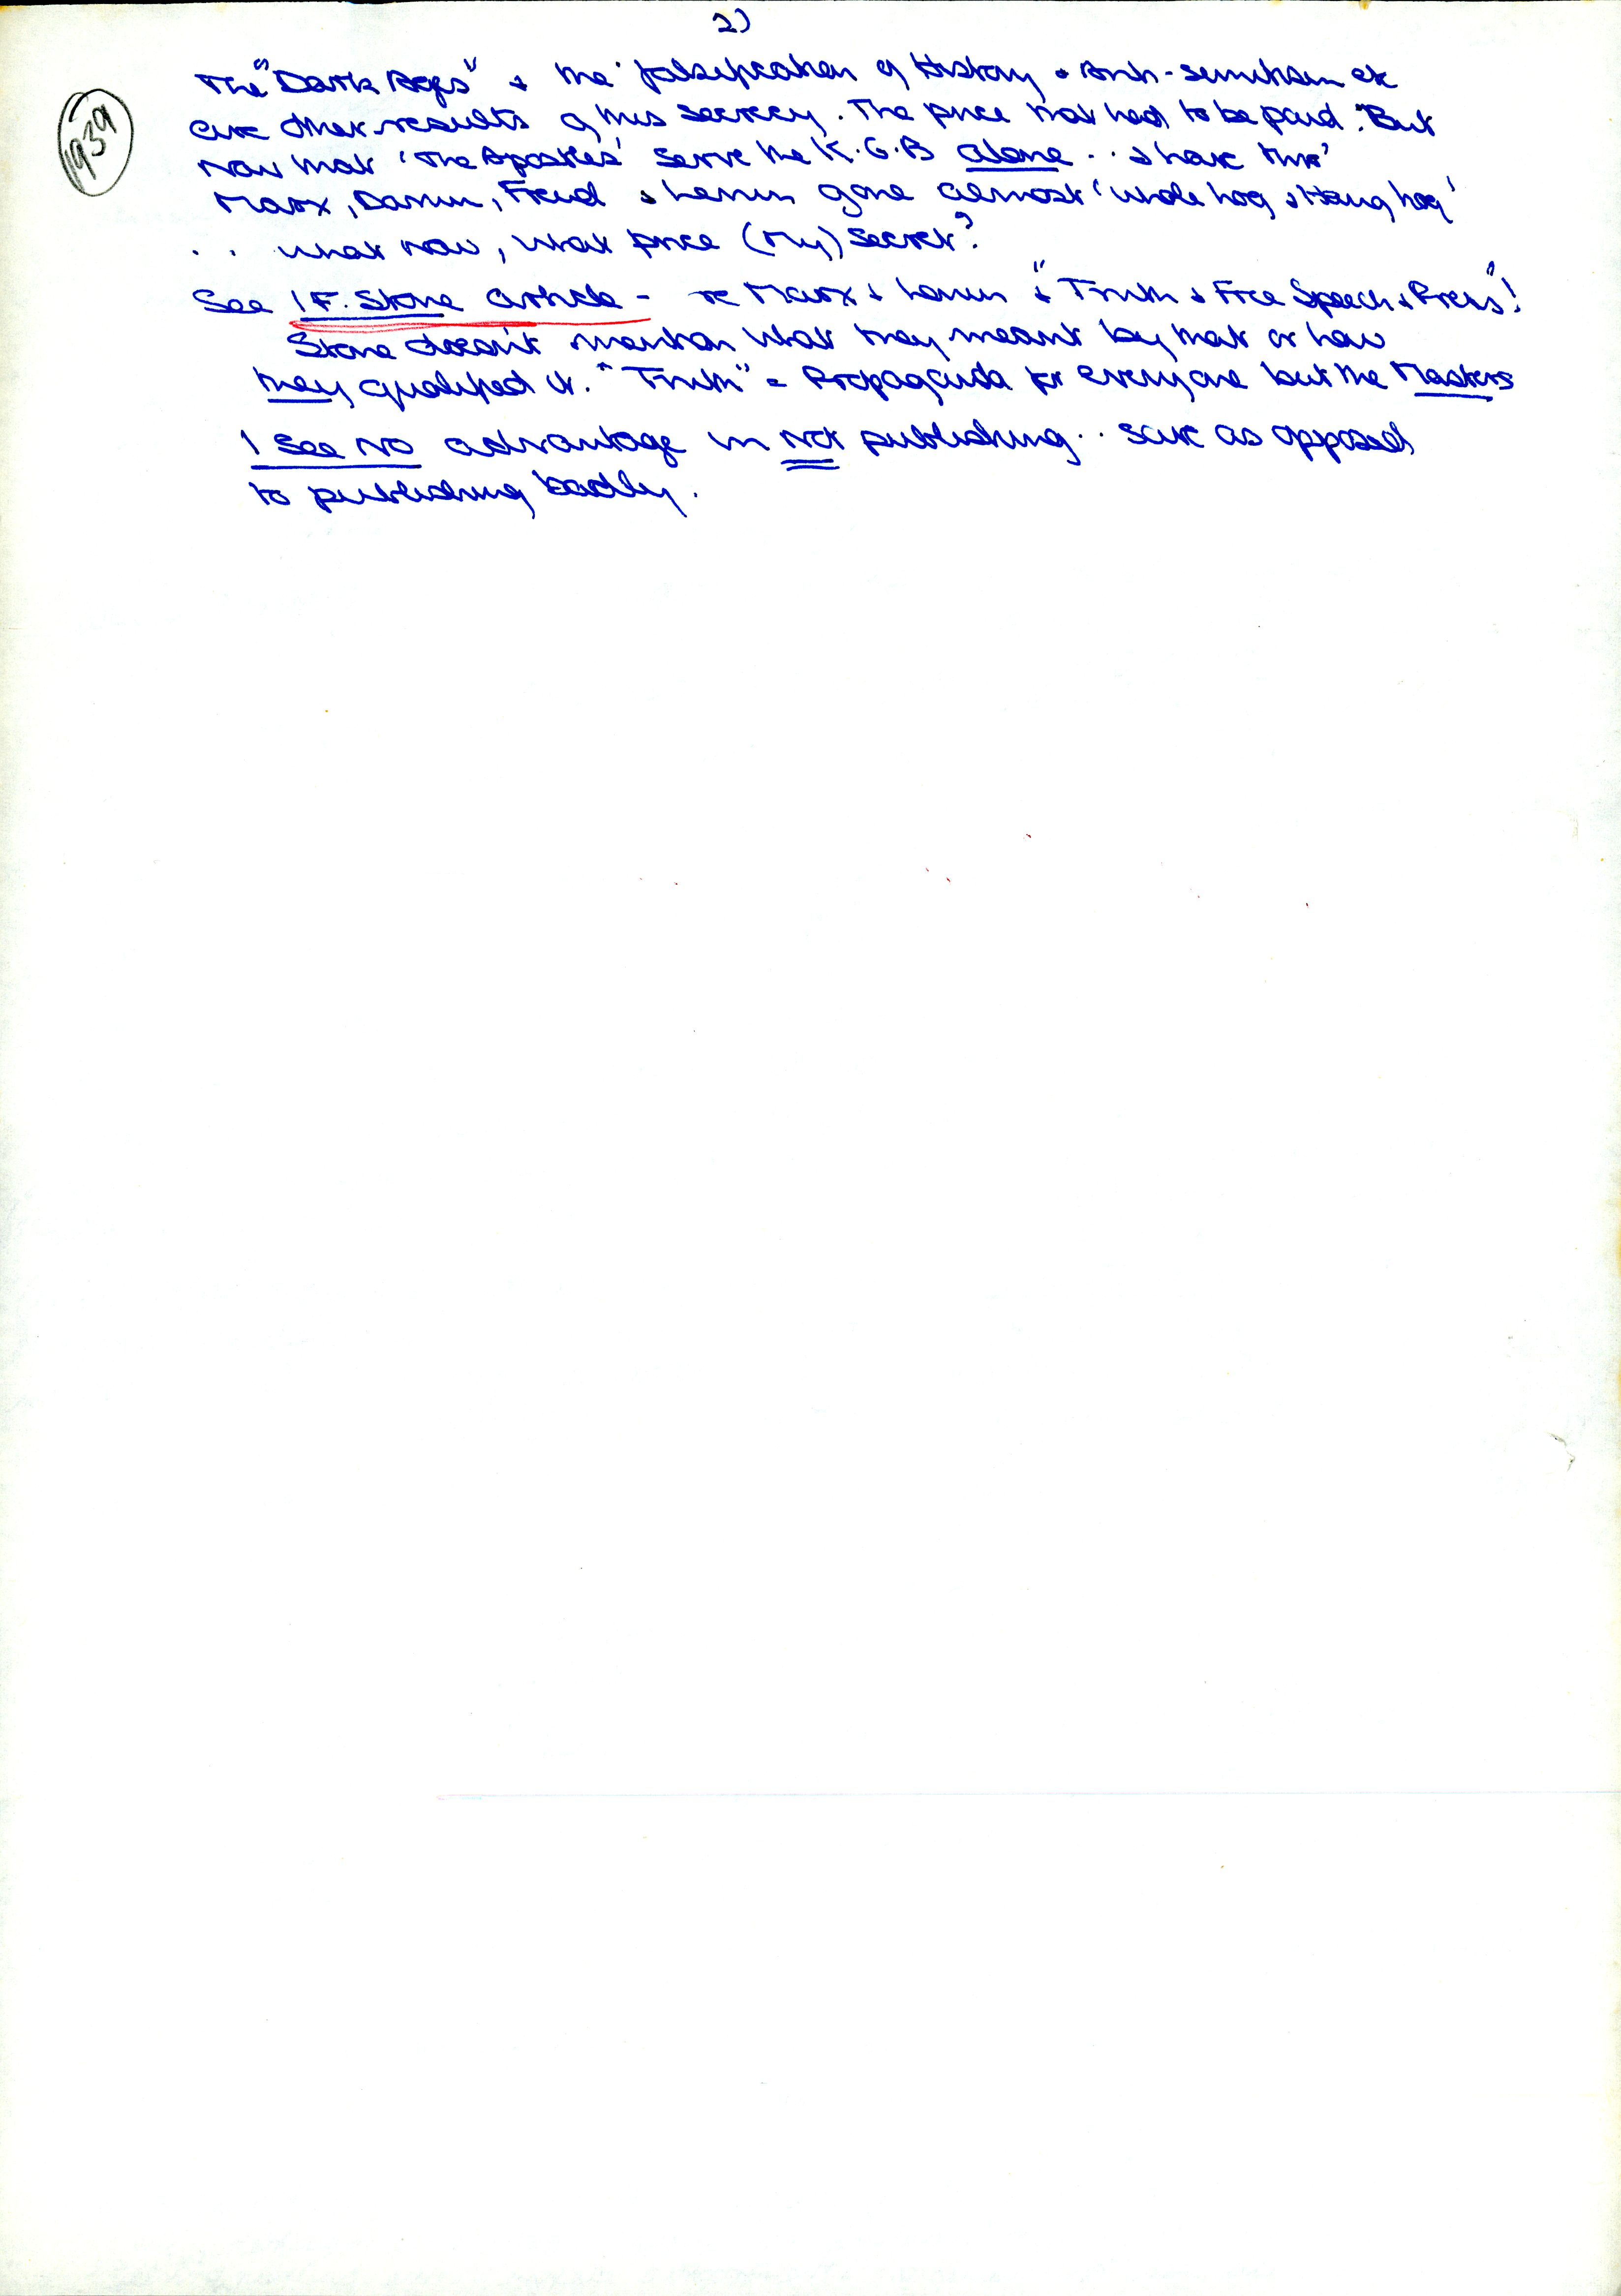 2)
1939
The "Dark Ages" & the falsification of History & Anti-semitism etc
are other results of this secrecy. The price that had to be paid. But
now that 'The Apostles' serve the K.G.B alone .. & have thro'
Marx, Darwin, Freud & Lenin gone almost 'whole hog & hog'
. . what now, what price (my) secret?
See I F. Stone article - re Marx & Lenin & "Truth & Free Speech & Press"!
Stone doesn't mention what they meant by that or how
they qualified it. "Truth" = Propaganda for everyone but the Masters
I see no advantage in not publishing .. save as opposed
to publishing badly.